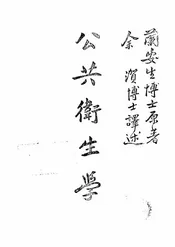 蘭安生博士原著
余濱博士譯述
公共衛生學